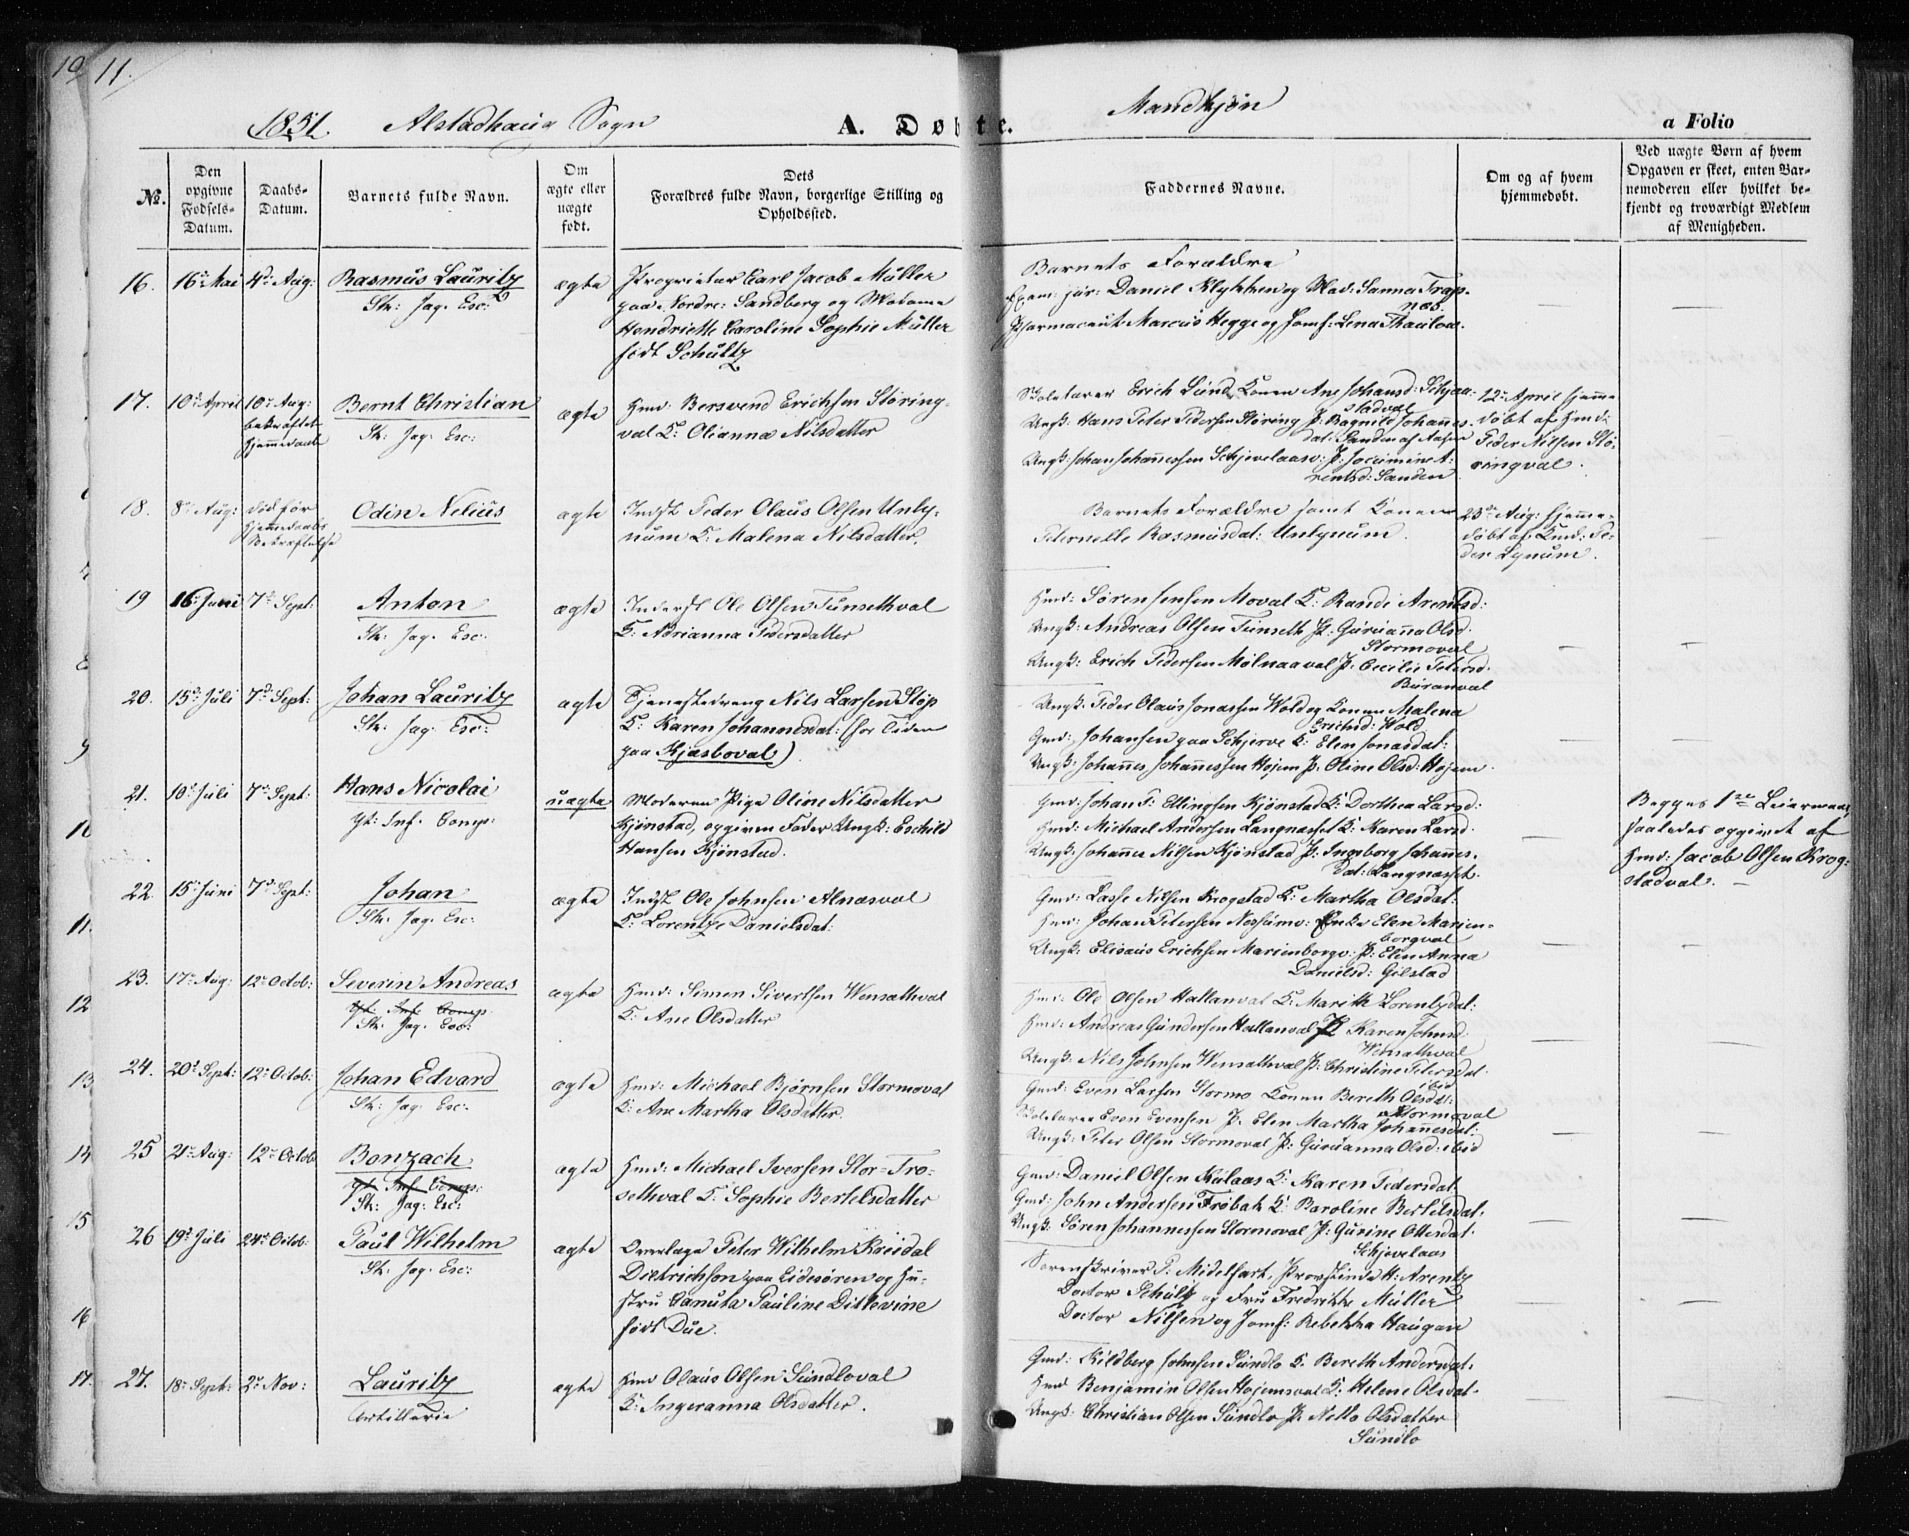 10 11.
1851. Alstadhaug Sogn A. Døbte. Mandkjøn a Folio
No.
Den opgivne Fødsels-Datum.
Daabs-Datum.
Barnets fulde Navn.
Om ægte eller uægte født.
Dets Forældres fulde Navn, borgerlige Stilling og Opholdssted.
Faddernes Navne.
Om og af hvem hjemmedøbt.
Ved uægte Børn af hvem Opgaven er skeet, enten Barnemoderen eller hvilket bekjendt og troværdigt Medlem af Menigheden.
16. 16de Mai 4de Aug: Rasmus Lauritz ægte Proprietær Carl Jacob Müller
Sk: Jag. Esc: paa Nordre: Sandberg og Madame
Hendriette Caroline Sophie Müller
født Schultz
Barnets Forældre
Exam: jur: Daniel Klykken og Mad: Sanna Trapnæs.
Pharmaceut Marcus Hegge og Jomf: Lena Thaulow. — —
17. 10de April 10de Aug: bekræftet Hjemmedaab Bernt Christian ægte Hmd: Bersvend Erichsen Støring-
Sk: Jag. Esc: val K: Olianna Nilsdatter
Skolelærer Erich Lund Konen Ane Johansd:
Ungk: Hans Peter Pedersen Støring P: Ragnild Johannes-
dat: Sanden af Aasen
Ungk: Johan Johannessen Schjevelaasv: P: Jocumine A-
rentsd: Sanden
12te April hjemme-
døbt af Hmd:
Peder Nilsen Stø-
ringval.
18. 8de Aug: Død før Hjemmedaabs Bekræftelse Odin Nelius ægte Indst Peder Olaus Olsen Unly-
num K: Malena Nilsdatter.
Barnets Forældre samt Konen
Peternelle Rasmusdat: Unlynum.
23de Aug: hjemme-
døbt af Hmd: Pe-
der Lynum.
19 16. Juni 7de Sept: Anton ægte Inderst Ole Olsen Tunsethval
Sk: Jag. Esc: K: Adrianna Pedersdatter
Hmd: Søren Jensen Moval K: Randi Arentsd:
Ungk: Andreas Olsen Tunseth P: Guruanna Olsd.
Stormoval
Ungk: Erich Pedersen Mølnaaval P: Cecilie Petersd.
Buranval
20. 15de Juli 7de Sept: Johan Lauritz ægte Tjenestedreng Nils Larsen Støp
Sk: Jag: Esc: K: Karen Johannesdat: (for Tiden
paa Kjæsboval)
Ungk: Peder Olaus Jonassen Wold og Konen Malena
Erichsd: Wold
Gmd: Johansen paa Schjerve K: Elen Jonasdat:
Ungk: Johannes Johannessen Hojem P: Oline Olsd: Hojem
21. 10de Juli 7de Sept: Hans Nicolai uægte Moderen Pige Oline Nilsdatter
Yt: Inf. Comp: Kjønstad, opgiven Fader Ungk: Eschild
Hansen Kjønstad.
Gmd: Johan P: Ellingsen Kjønstad K: Dorthea Larsd:
Hmd: Michael Andersen Langnasset K: Maren Larsd.
Ungk: Johannes Nilsen Kjønstad P: Ingeborg Johannes-
dat: Langnasset.
Begges 1ste Leiermaal,
saaledes opgivet af
Hmd: Jacob Olsen Krog-
stadval. —
22. 15de Juni 7de Sept: Johan ægte Indst Ole Johnsen Alnæsval
Sk: Jag. Esc: K: Lorentze Danielsdat:
Gmd: Lasse Nilsen Krogstad K: Martha Olsdat:
Hmd: Johan Petersen Nossumv: Enke Elen Marien-
borgval
Ungk: Elisæus Erichsen Marienborgv: P: Elen Anna
Danielsd: Gilstad
23. 17de Aug: 12te Octob: Severin Andreas ægte Hmd: Simon Sivertsen Wensathval
Yt: Inf. Comp. K: Ane Olsdatter
Sk: Jag. Esc:
Hmd: Ole Olsen Hallanval K: Marith Lorentzdat:
Hmd: Andreas Gundersen Hallanval P Karen Johnsd
Wensathval
Ungk: Nils Johnsen Wensathval P: Christine Petersdat.
ibid
24. 20de Sept: 12te Octob: Johan Edvard ægte Hmd: Michael Bjørnsen Stormoval
Sk: Jag: Esc: K: Ane Martha Olsdatter.
Gmd: Even Larsen Stormo Konen Bereth Olsdat:
Stormoval
Skolelærer Even Evensen P. Elen Martha Johannesdat:
Ungk: Peter Olsen Stormoval P: Guruanna Olsd: ibid
25 21de Aug: 12te Octob Bonzach ægte Hmd: Michael Iversen Stor-Tro-
Yt: Inf. Comp: sethval K: Sophie Bertelsdatter
Sk: Jag: Esc:
Gmd: Daniel Olsen Kulaas K: Karen Pedersdat.
Gmd: John Andersen Frøbak K: Baroline Bertelsdat.
Ungk: Søren Johannessen Stormoval P: Gurine Ottersdat.
Schjevelaas
26 19de Juli 24de Octob: Paul Wilhelm ægte Overlæge Peter Wilhelm Kreidal
Sk: Jag. Esc: Dietrichson paa Eidesøren og Hu-
stru Canuta Pauline Ditlevine
født Due.
Sorenskriver P. Midelfart, Provstinde H: Arentz
Doctor Schultz og Fru Fredrikke Müller
Doctor Nilsen og Jomf: Rebekka Haugan
27. 18de Sept: 2de Nov: Lauritz ægte Hmd Olaus Olsen Sundloval
Artillerie K: Ingeranna Olsdatter.
Gmd: Kildberg Johnsen Sundlo K. Bereth Andersdat.
Hmd Benjamin Olsen Hojemsval K: Helene Olsdat.
Ungk: Christian Olsen Sundlo P: Netta Olsdatter
Sundlo